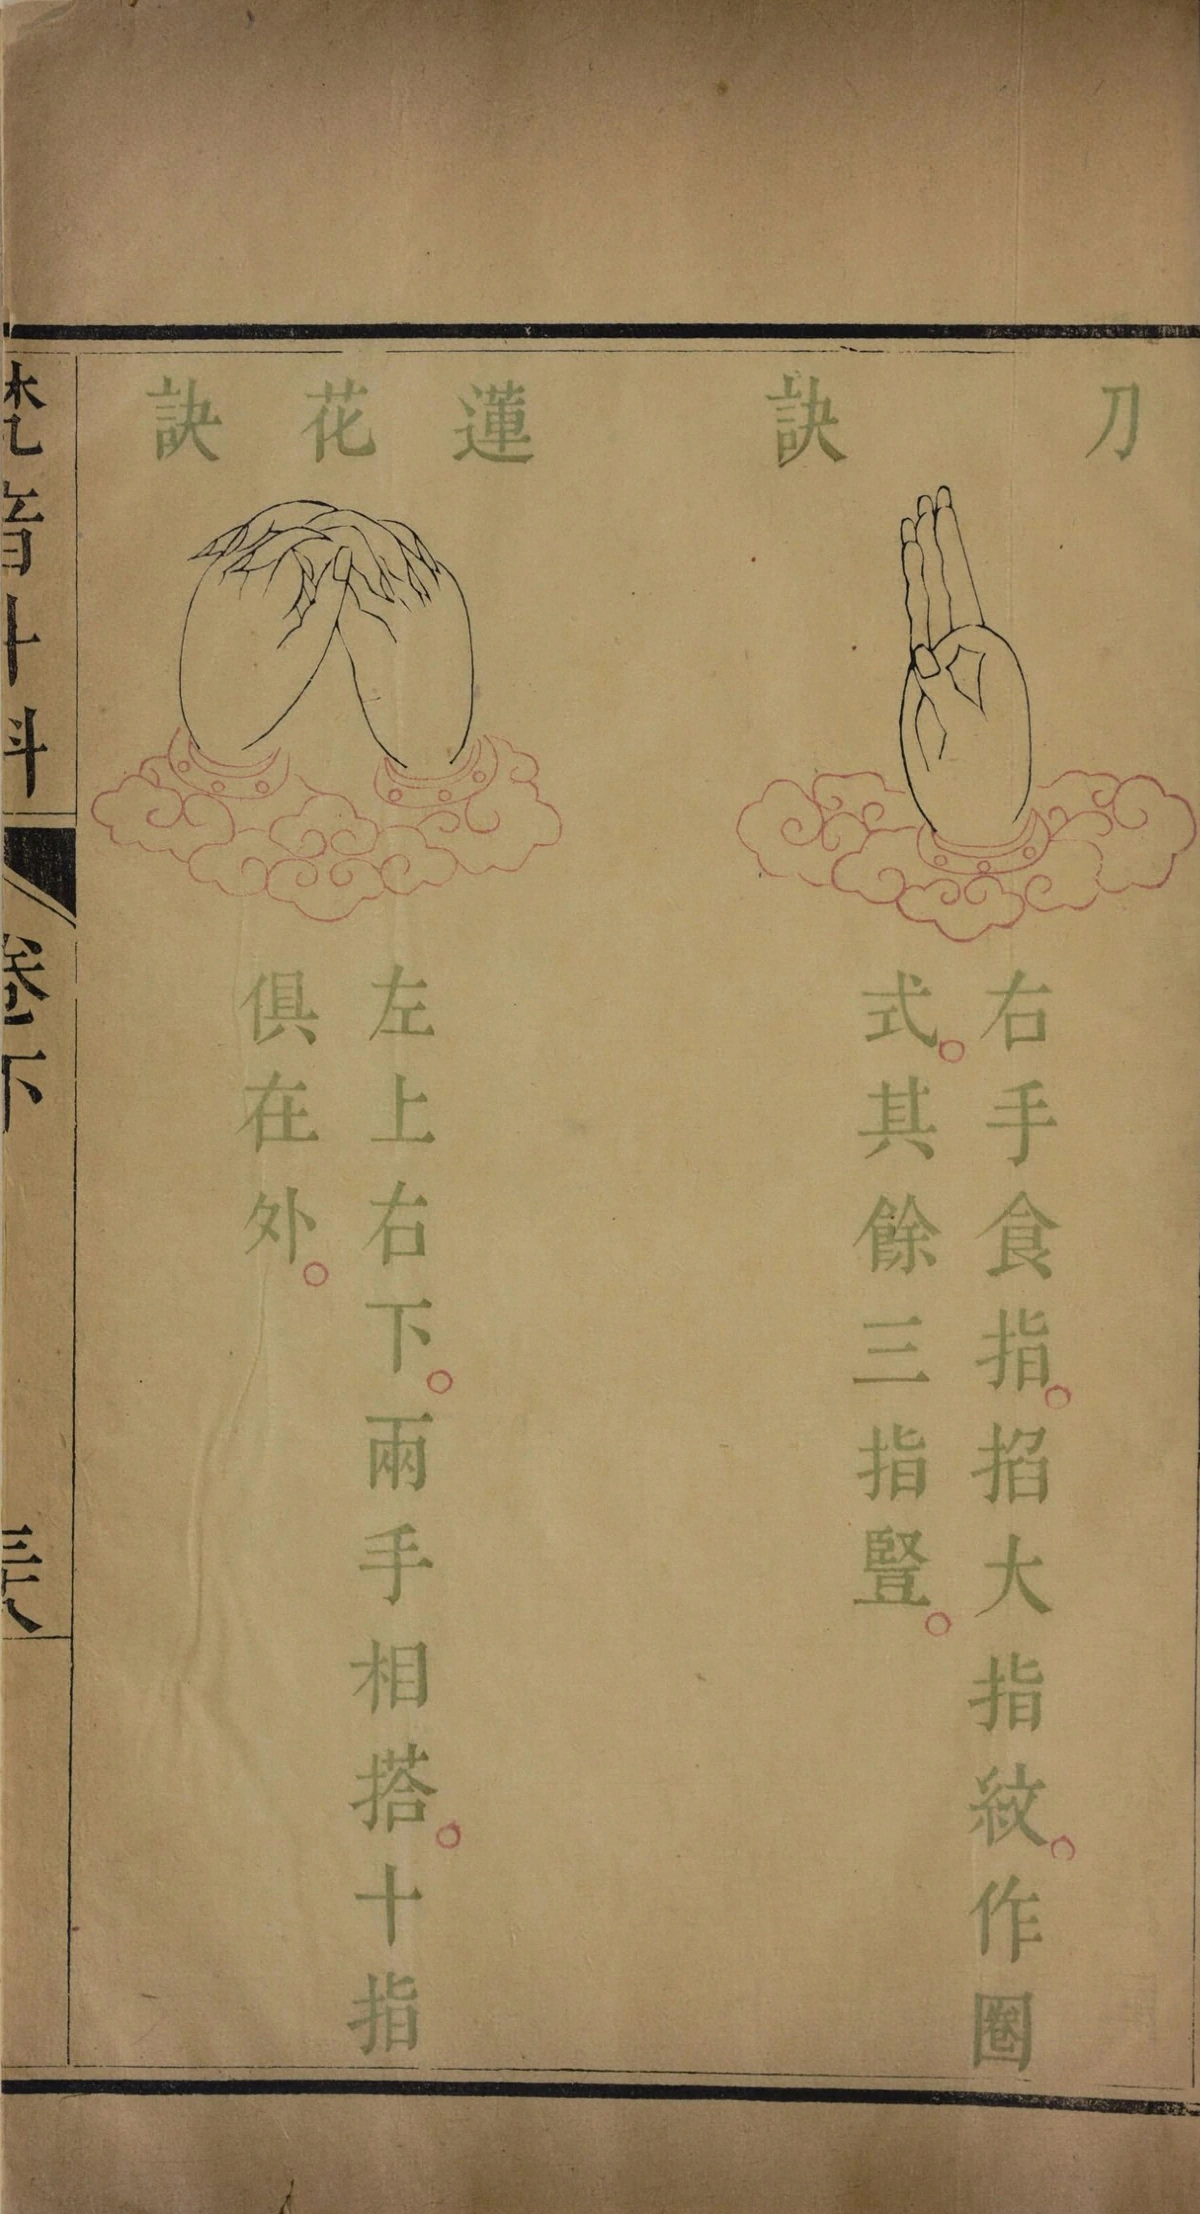 刀訣
右手食指。掐大指紋。作圈
式。其餘三指豎。
蓮花訣
左上右下。兩手相搭。十指
俱在外。
梵音斗科
卷下